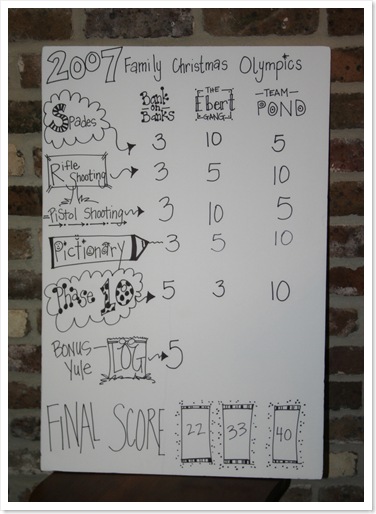 2007 Family Christmas Olympics
Bank on Banks THE Ebert GANG TEAM POND
Spades 3 10 5
Rifle Shooting 3 5 10
Pistol Shooting 3 10 5
Pictionary 3 5 10
Phase 10 5 3 10
BONUS- Yule LOG 5
FINAL SCORE 22 33 40